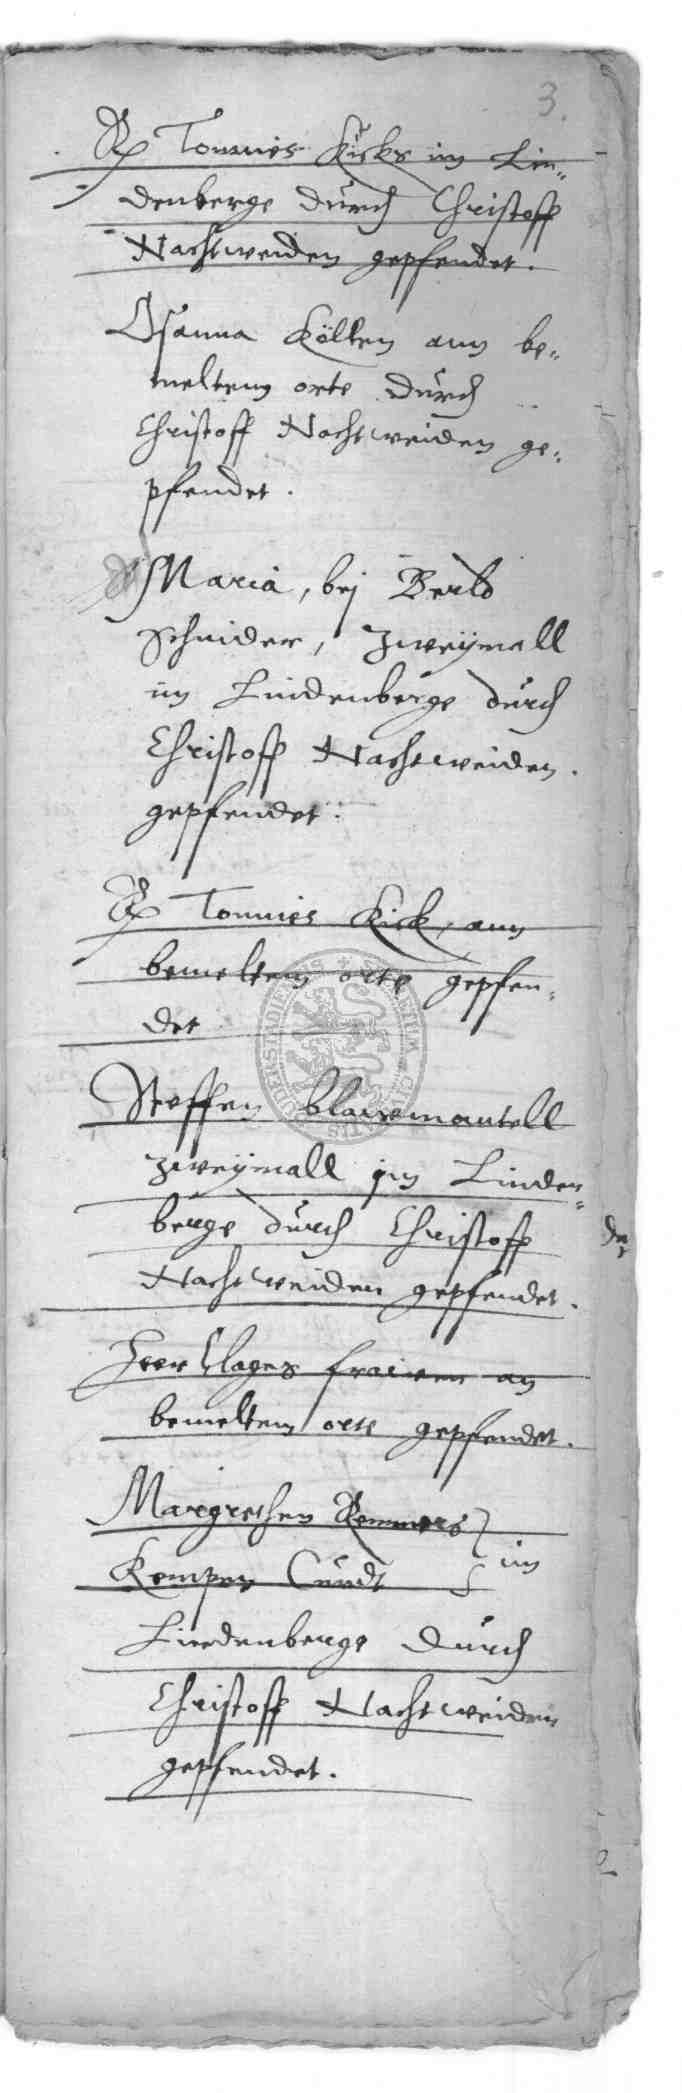 3.
Tonnies Kicks im Lin-
denberge durch Christoff
Nachtweiden gepfendet.
Osanna Kölken ann be-
meltem orte durch
Christoff Nachtweiden ge-
pfendet.
Maria, bej Berld
Schnider, zweymall
im Lindenberge durch
Christoff Nachtweiden
gepfendet.
Tonnies Kick, ann
bemeltem orte gepfen-
det
Steffen blawmantell
zweymall im Linden-
berge durch Christoff
Nachtweiden gepfendet.
Heer Clages frawen an
bemeltem orte gepfendet.
Margrethen Remmers
Kemper Curdt im
Lindenberge durch
Christoff Nachtweiden
gepfendet.